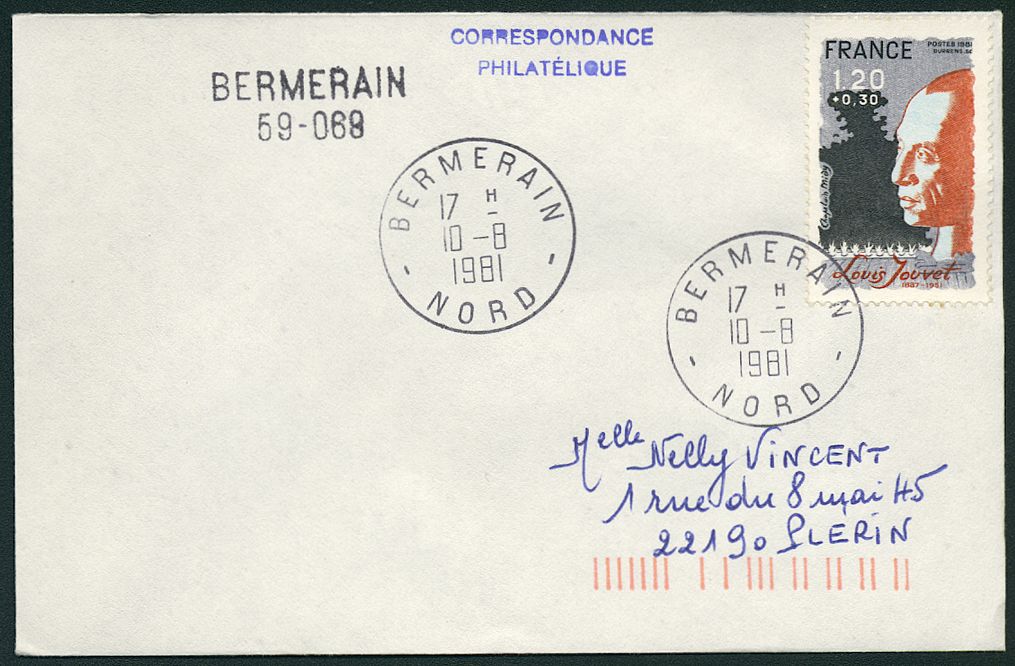 CORRESPONDANCE
PHILATÉLIQUE
BERMERAIN
59-069
FRANCE
POSTES 1981
DURRENS.SC
1,20
+0,30
Louis Jouvet
(1887-1951)
BERMERAIN
17 H
10-8
1981
NORD
BERMERAIN
17 H
10-8
1981
NORD
Melle Nelly VINCENT
1 rue du 8 mai 45
22190 PLERIN